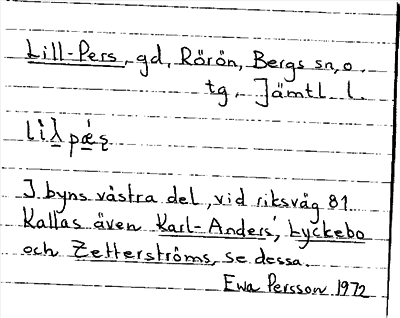 Lill-Pers, gd, Rörön, Bergs sn, o.
tg, Jämtl. l.
I byns västra del, vid riksväg 81.
Kallas även Karl-Anders', Lyckebo
och Zetterströms, se dessa.
Ewa Persson 1972